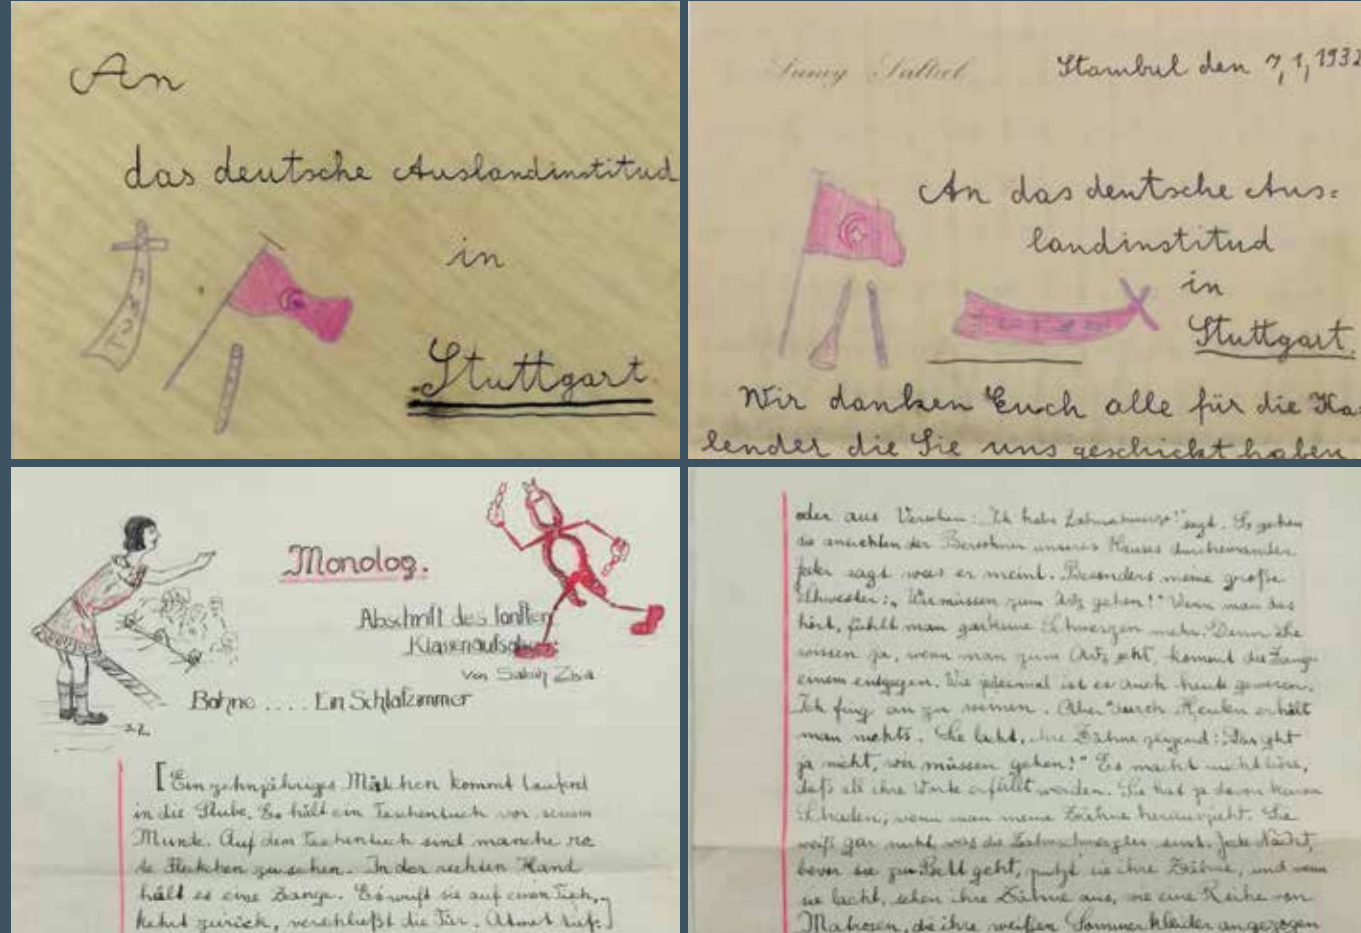 An
das deutsche Auslandinstitud
in
Stuttgart.
Stambul den 7,1,1932
An das deutsche Aus=
landinstitud
in
Stuttgart.
Wir danken Euch alle für die Ka
lender die Sie uns geschickt haben
Monolog.
Abschrift des
Klassenaufsatzes
von Zbia
Bühne .... Ein Schlafzimmer
S.Z.
[Ein zehnjähriges Mädchen kommt laufend
in die Stube. Es hält ein Taschentuch vor seinem
Munde. Auf dem Taschentuch sind manche ro
te Fleckchen zu sehen. In der rechten Hand
hält es eine Zange. Es wirft sie auf einen Tisch,
kehrt zurück, verschließt die Tür. Atmet tief.]
oder aus Versehen: "Ich habe Zahnschmerzen" sagt. So gehen
die Bewohner unseres Hauses durcheinander
Jeder sagt was er meint. Besonders meine große
Schwester: "Wir müssen zum Arzt gehen!" Wenn man das
hört, fühlt man gar keine Schmerzen mehr. Denn Sie
wissen ja, wenn man zum Arzt geht, kommt die Zange
einem entgegen. Wie jedesmal ist es auch heute gewesen.
Ich fing an zu weinen. Aber durch Heulen erhält
man nichts. Sie lacht, ihre Zähne zeigend: "Das geht
ja nicht, wir müssen gehen!" Es macht nichts
daß all ihre Worte erfüllt werden. Sie hat ja davon keinen
Schaden, wenn man meine Zähne herauszieht. Sie
weiß gar nicht, was die sind. Jede Nacht,
bevor sie zu Bett geht, putzt sie ihre Zähne, und wenn
sie lacht, sehen ihre Zähne aus, wie eine Reihe von
Matrosen, die ihre weißen Sommerkleider angezogen